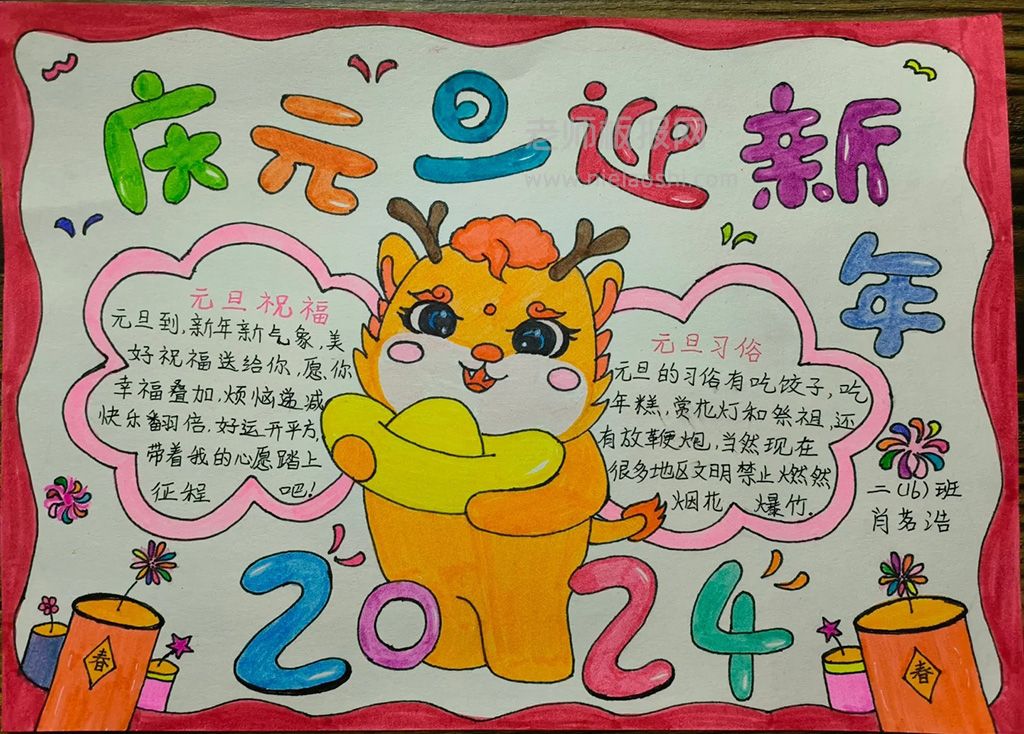 庆元旦迎新
年
老师板报网
元旦祝福
元旦到,新年新气象,美
好祝福送给你,愿你
幸福叠加,烦恼递减
快乐翻倍,好运开平方,
带着我的心愿踏上
征程 吧!
元旦习俗
元旦的习俗有吃饺子,吃
年糕,赏花灯和祭祖,还
有放鞭炮,当然现在
很多地区文明禁止燃然
烟花,爆竹.
二(16)班
肖茗浩
2024
春
春